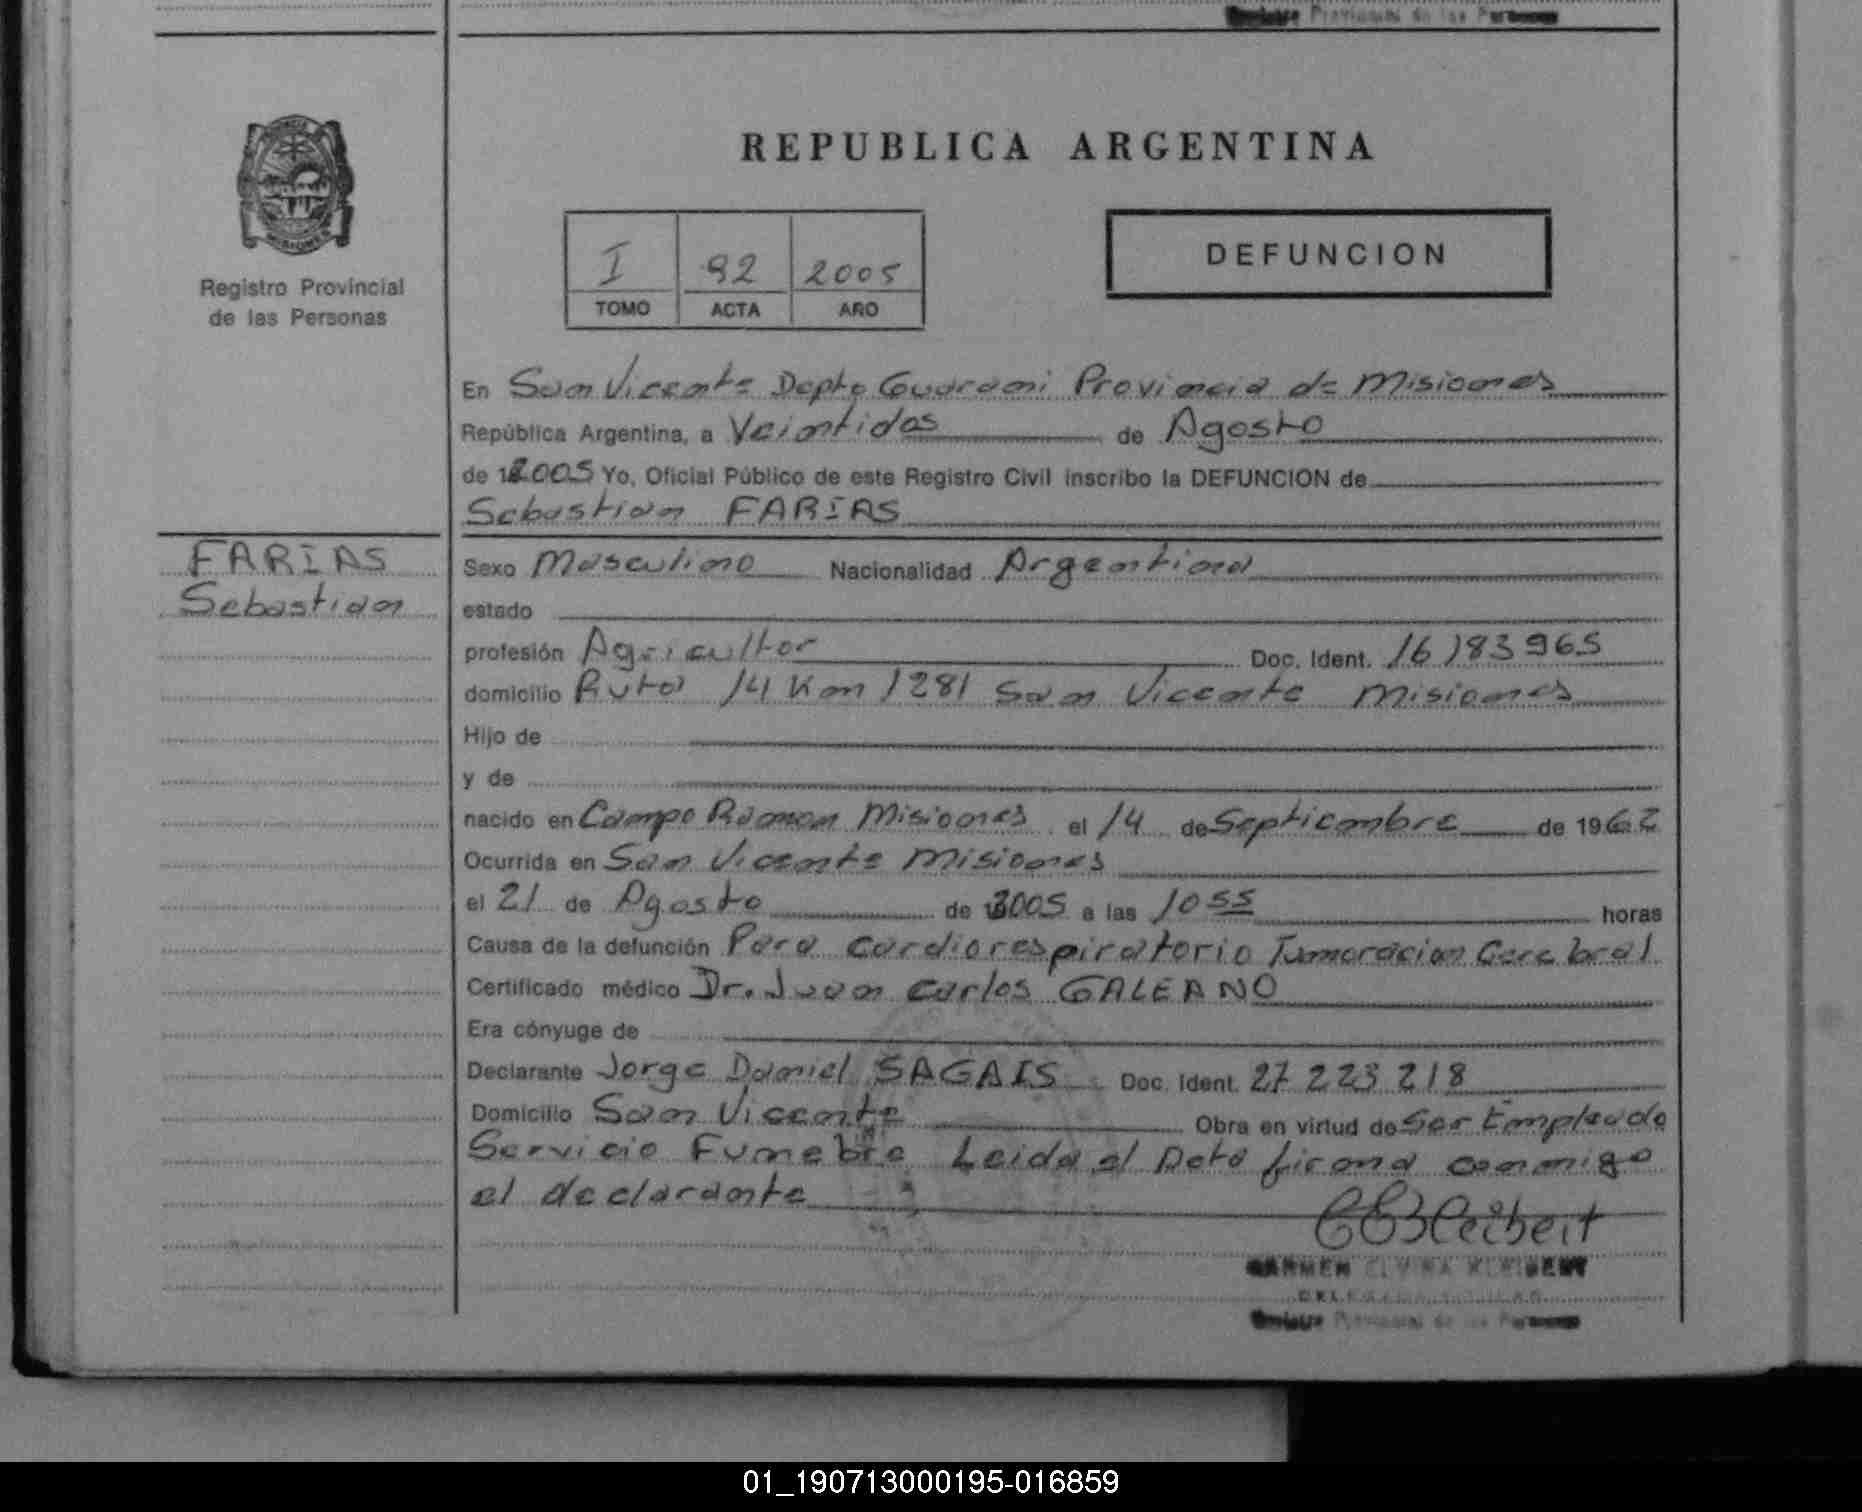 Registro Provincial de las Personas
REPUBLICA ARGENTINA
MISIONES
Registro Provincial
de las Personas
I 92 2005
TOMO ACTA AÑO
DEFUNCION
En San Vicente Depto Guarani Provincia de Misiones
República Argentina, a Veintidos de Agosto
de 2005 Yo, Oficial Público de este Registro Civil inscribo la DEFUNCION de
Sebastian FARIAS
FARIAS
Sebastian
Sexo Masculino Nacionalidad Argentina
estado
profesión Agricultor Doc. Ident. 16183965
domicilio Ruta 14 Km 1281 San Vicente Misiones
Hijo de
y de
nacido en Campo Ramon Misiones el 14 de Septiembre de 1962
Ocurrida en San Vicente Misiones
el 21 de Agosto de 2005 a las 10 55 horas
Causa de la defunción Paro cardiorespiratorio Tumoracion Cerebral
Certificado médico Dr. Juan Carlos GALEANO
Era cónyuge de
Declarante Jorge Daniel SAGAIS Doc. Ident. 27 223 218
Domicilio San Vicente Obra en virtud de Ser Empleado
Servicio Funebre Leida el Acta firma conmigo
el declarante
CARMEN ELVIRA KLEIBERT
Registro Provincial de las Personas
01_190713000195-016859